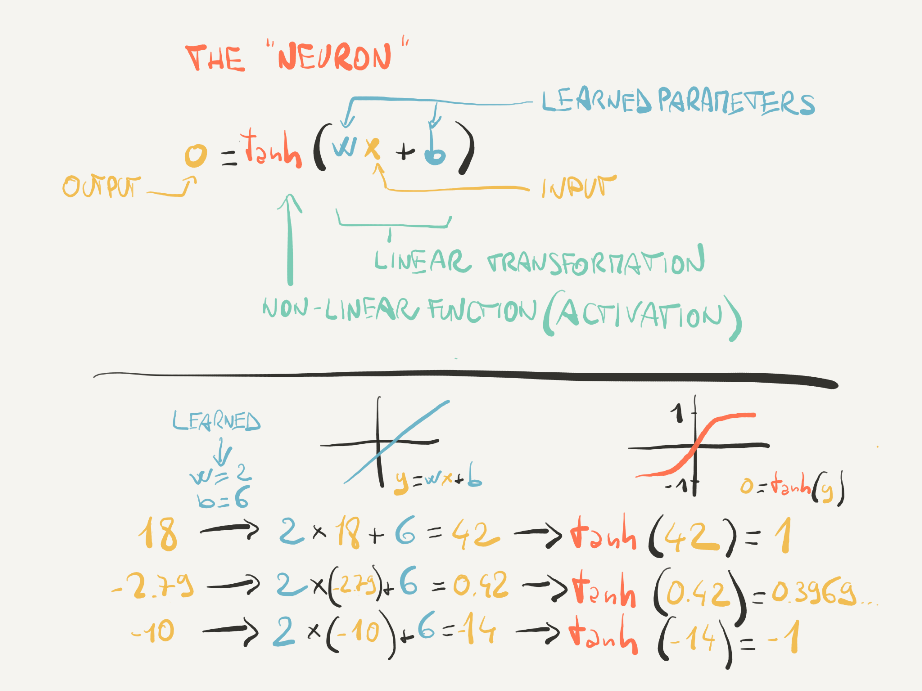 THE "NEURON"
LEARNED PARAMETERS
o = tanh (wx + b)
OUTPUT
INPUT
LINEAR TRANSFORMATION
NON-LINEAR FUNCTION (ACTIVATION)
LEARNED
w = 2
b = 6
y = wx + b
1
-1
o = tanh(y)
18 → 2 × 18 + 6 = 42 → tanh (42) = 1
-2.79 → 2 × (-2.79) + 6 = 0.42 → tanh (0.42) = 0.3969...
-10 → 2 × (-10) + 6 = -14 → tanh (-14) = -1